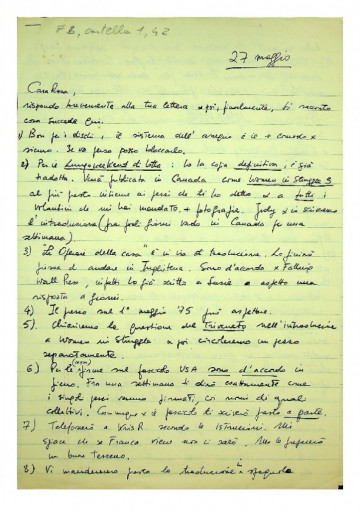 F B, cartella 1, 42
27 maggio
Cara Rosa,
rispondo brevemente alla tua lettera x poi, finalmente, ti racconto
cosa succede qui.
1) Bon per i dischi, il sistema dell' assegno è il + comodo x
sicuro. Se va perso posso bloccarlo.
2) Per le lungoweekend di lotta: ho la copia definitiva, è già
tradotta. Verrà pubblicata in Canada come Women in Struggle 3
al più presto insieme ai pezzi che ti ho detto x a tutti i
volantini che mi hai mandato + fotografie. Judy x io scriviamo
l'introduzione (fra pochi giorni vado in Canada per una
settimana).
3) "Le Operaie della casa" è in via di traduzione. Lo finirò
prima di andare in Inghilterra. Sono d'accordo x Falling
Wall Press, infatti ho già scritto a Suzie x aspetto una
risposta a giorni.
4) Il pezzo sul 1° maggio '75 può aspettare.
5). Chiariremo la questione del Triveneto nell'introduzione
a Women in Struggle x poi circoleremo un pezzo
separatamente.
6) Per le firme (nomi) sul fascicolo USA sono d'accordo in
pieno. Fra una settimana ti dirò esattamente come
i singoli pezzi vanno firmati, coi nomi di quali
collettivi. Comunque x il fascicolo ti scriverò presto a parte.
7) Telefonerò a Kris R. secondo le istruzioni. Mi
spiace che se Franca viene non ci sarò. Ma le preparerò
un buon terreno.
8) Vi manderemo presto la traduzione in spagnolo